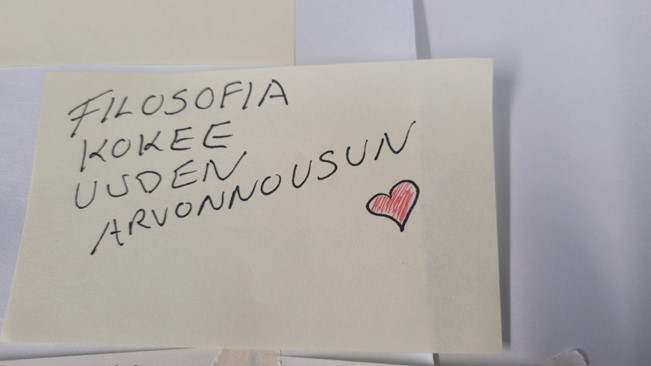 FILOSOFIA
KOKEE
UUDEN
ARVONNOUSUN